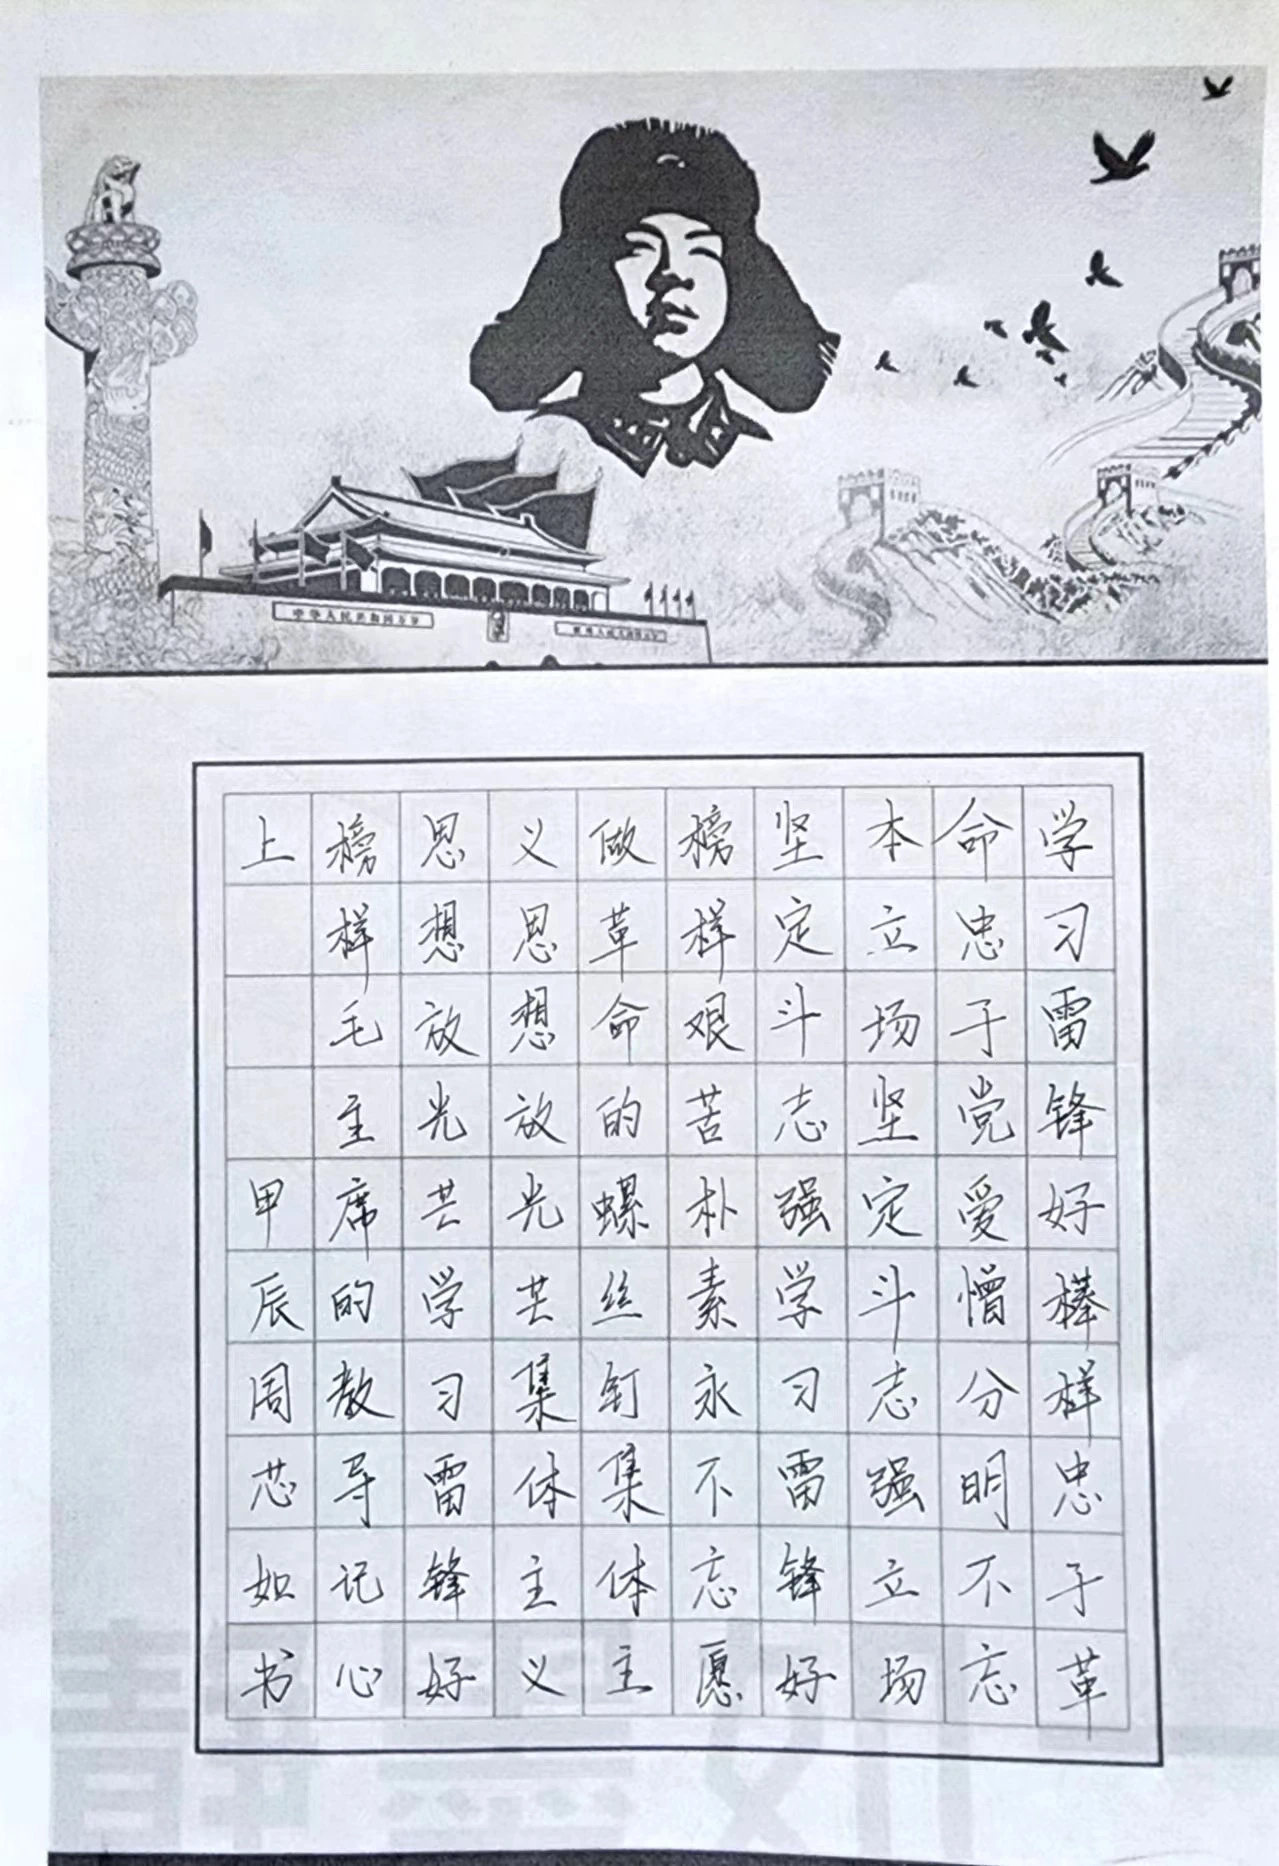 中华人民共和国万岁
学习雷锋好棒样忠于革
命忠于党爱憎分明不忘
本立场坚定斗志强立场
坚定斗志强学习雷锋好
榜样艰苦朴素永不忘愿
做革命的螺丝钉集体主
义思想放光芒集体主义
思想放光芒学习雷锋好
榜样毛主席的教导记心
上 甲辰周芯如书